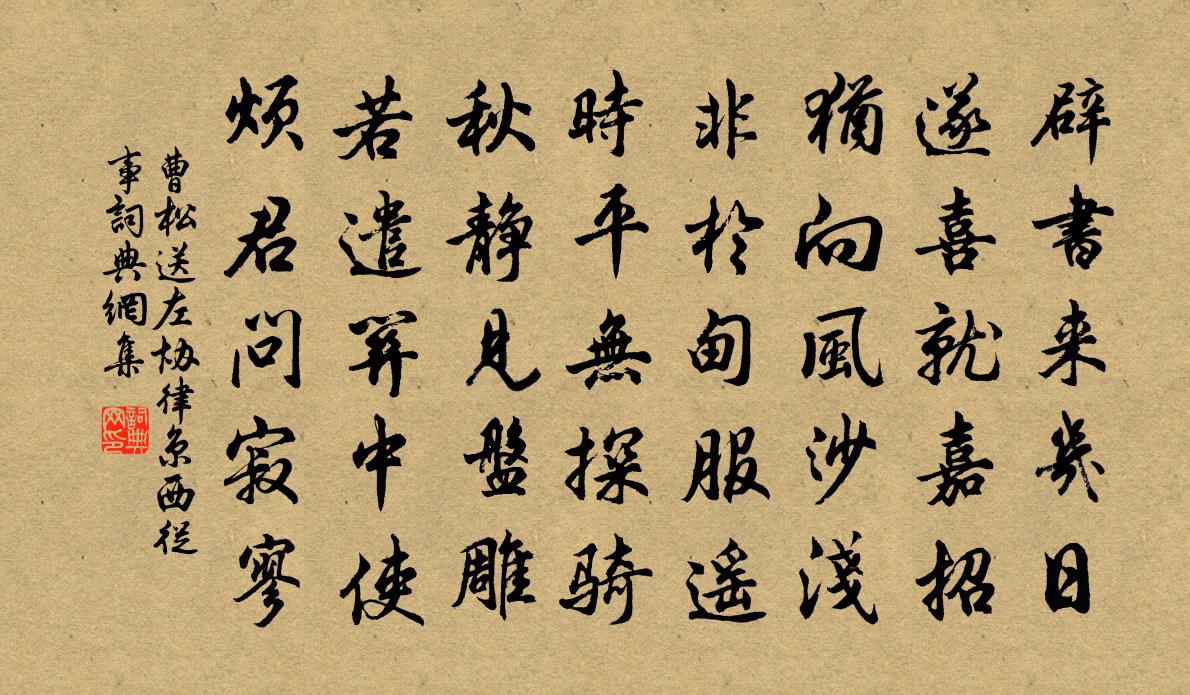 辟書來幾日
遂喜就嘉招
猶向風沙淺
非於甸服遥
時平無探騎
秋靜見盤雕
若遣筭中使
煩君問寂寥
曹松送左協律京西從
事詞典網集
詞典
网印